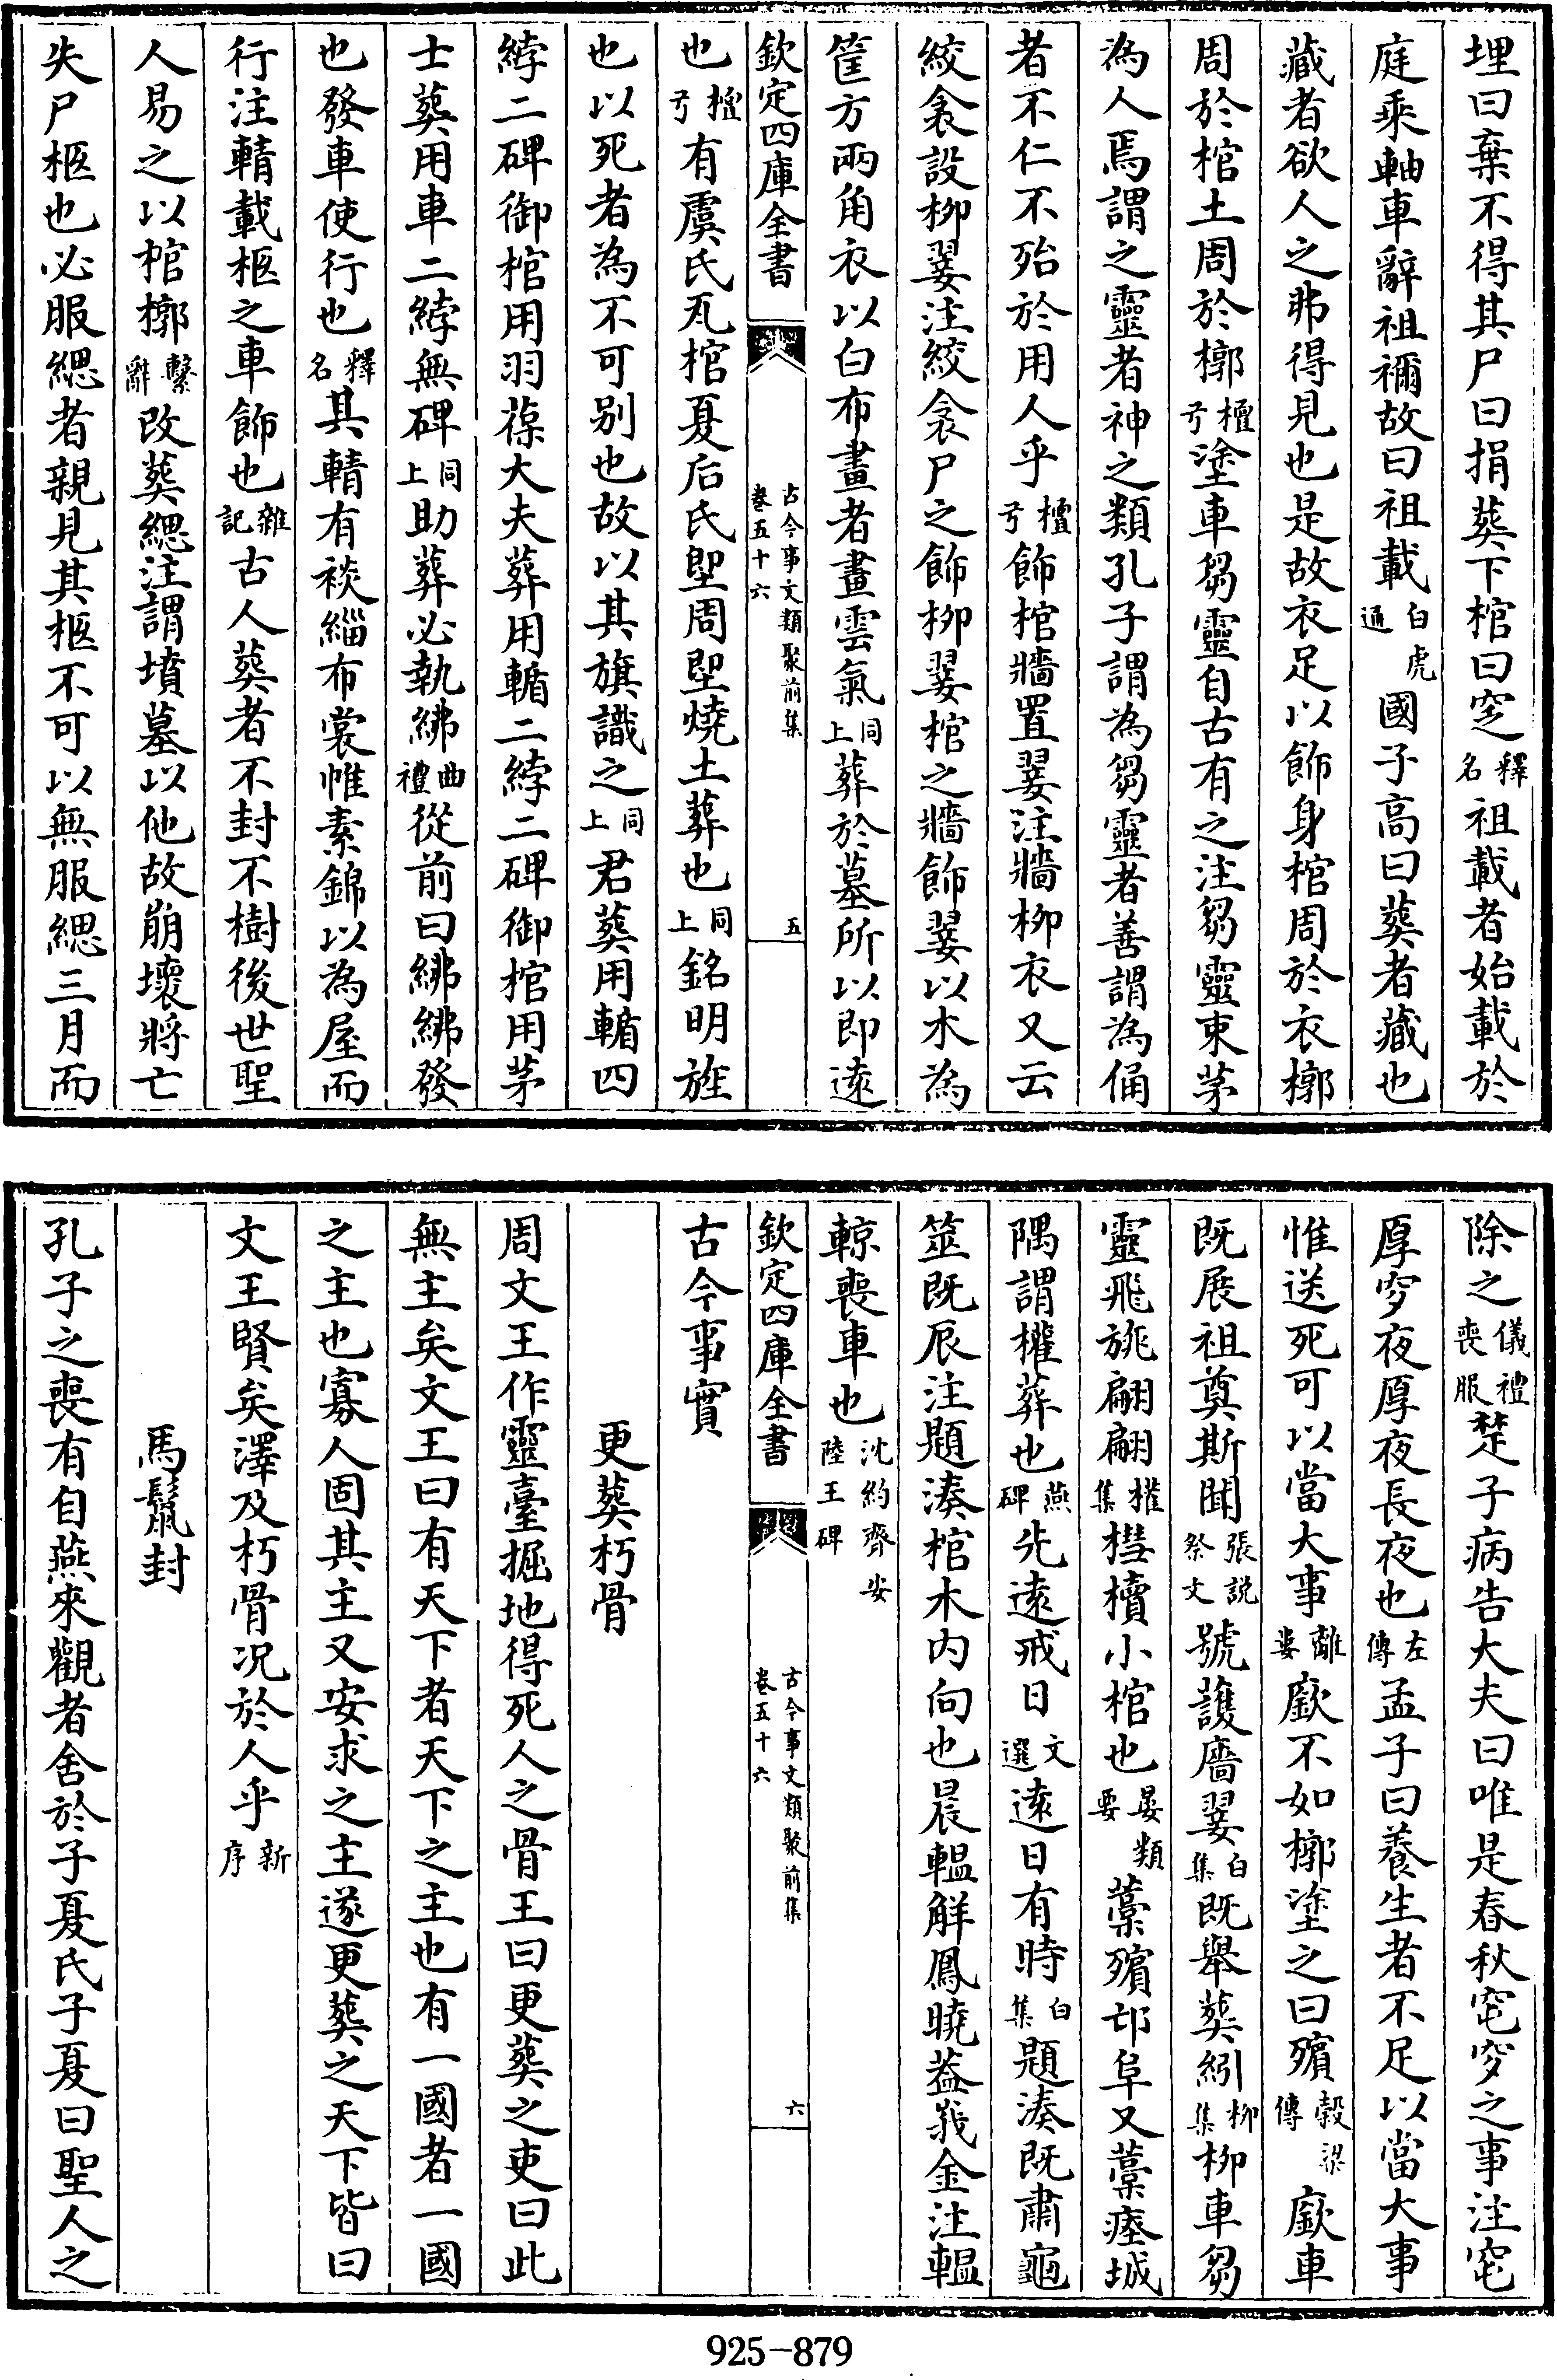 埋曰棄不得其尸曰捐葬下棺曰窆釋名祖載者始載於
庭乘軸車辭祖禰故曰祖載白虎通國子高曰葬者藏也
藏者欲人之弗得見也是故衣足以飾身棺周於衣槨
周於棺土周於槨檀弓塗車芻靈自古有之注芻靈束茅
為人焉謂之靈者神之類孔子謂為芻靈者善謂為俑
者不仁不殆於用人乎檀弓飾棺牆置翣注牆柳衣又云
絞衾設柳翣注絞衾尸之飾柳翣棺之牆飾翣以木為
筐方兩角衣以白布畫者畫雲氣同上葬於墓所以即逺
欽定四庫全書
古今事文類聚前集
卷五十六
五
也檀弓有虞氏瓦棺夏后氏堲周堲燒土葬也同上銘明旌
也以死者為不可别也故以其旗識之同上君葬用輴四
綍二碑御棺用羽葆大夫葬用輴二綍二碑御棺用茅
士葬用車二綍無碑同上助葬必執紼曲禮從前曰紼紼發
也發車使行也釋名其輤有裧緇布裳帷素錦以為屋而
行注輤載柩之車飾也雜記古人葬者不封不樹後世聖
人易之以棺槨繫辭改葬緦注謂墳墓以他故崩壞將亡
失尸柩也必服緦者親見其柩不可以無服緦三月而
除之儀禮喪服楚子病告大夫曰唯是春秋窀穸之事注窀
厚穸夜厚夜長夜也左傳孟子曰養生者不足以當大事
惟送死可以當大事離婁廞不如槨塗之曰殯穀梁傳廞車
既展祖奠斯聞張説祭文號護牆翣白集既舉葬紖柳集柳車芻
靈飛旐翩翩權集槥櫝小棺也晏類要藁殯邙阜又藁瘞城
隅謂權葬也燕碑先逺戒日文選逺日有時白集題湊既肅龜
筮既辰注題湊棺木内向也晨轀解鳳曉葢我金注轀
輬喪車也沈約齊安陸王碑
欽定四庫全書
古今事文類聚前集
卷五十六
六
古今事實
更葬朽骨
周文王作靈臺掘地得死人之骨王曰更葬之吏曰此
無主矣文王曰有天下者天下之主也有一國者一國
之主也寡人固其主又安求之主遂更葬之天下皆曰
文王賢矣澤及朽骨况於人乎新序
馬鬛封
孔子之喪有自燕來觀者舍於子夏氏子夏曰聖人之
925-879